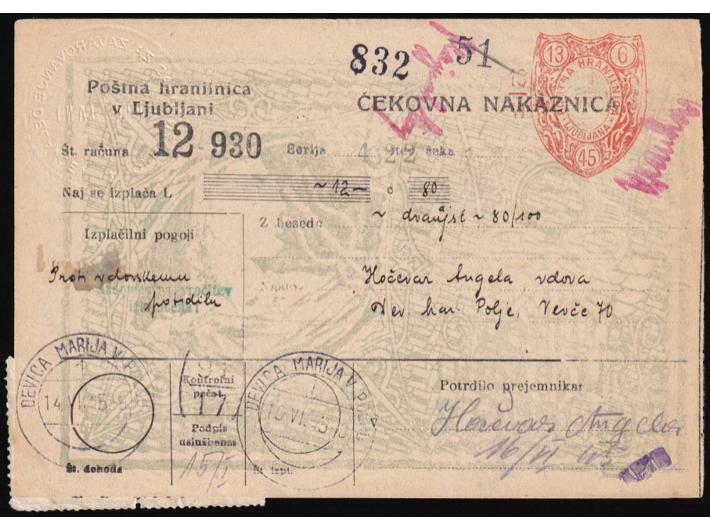 832 51
13 6
Poštna hranilnica
v Ljubljani
ČEKOVNA NAKAZNICA
LJUBLJANA
45
Št. računa 12-930 Serija 422 štev. čeka
Naj se izplača L ~12~ c 80
Z besedo ~ dvanajst ~ 80/100
Izplačilni pogoji
Proti vdovskemu
potrdilu
Hočevar Angela, vdova
Dev. mar. Polje, Vevče 70
DEVICA MARIJA V POLJU
Kontrolni
pečat
Podpis
uslužbenca
15/I
Št. dohoda
DEVICA MARIJA V POLJU
Št. izpl.
Potrdilo prejemnika:
Hočevar Angela
16/VI 45